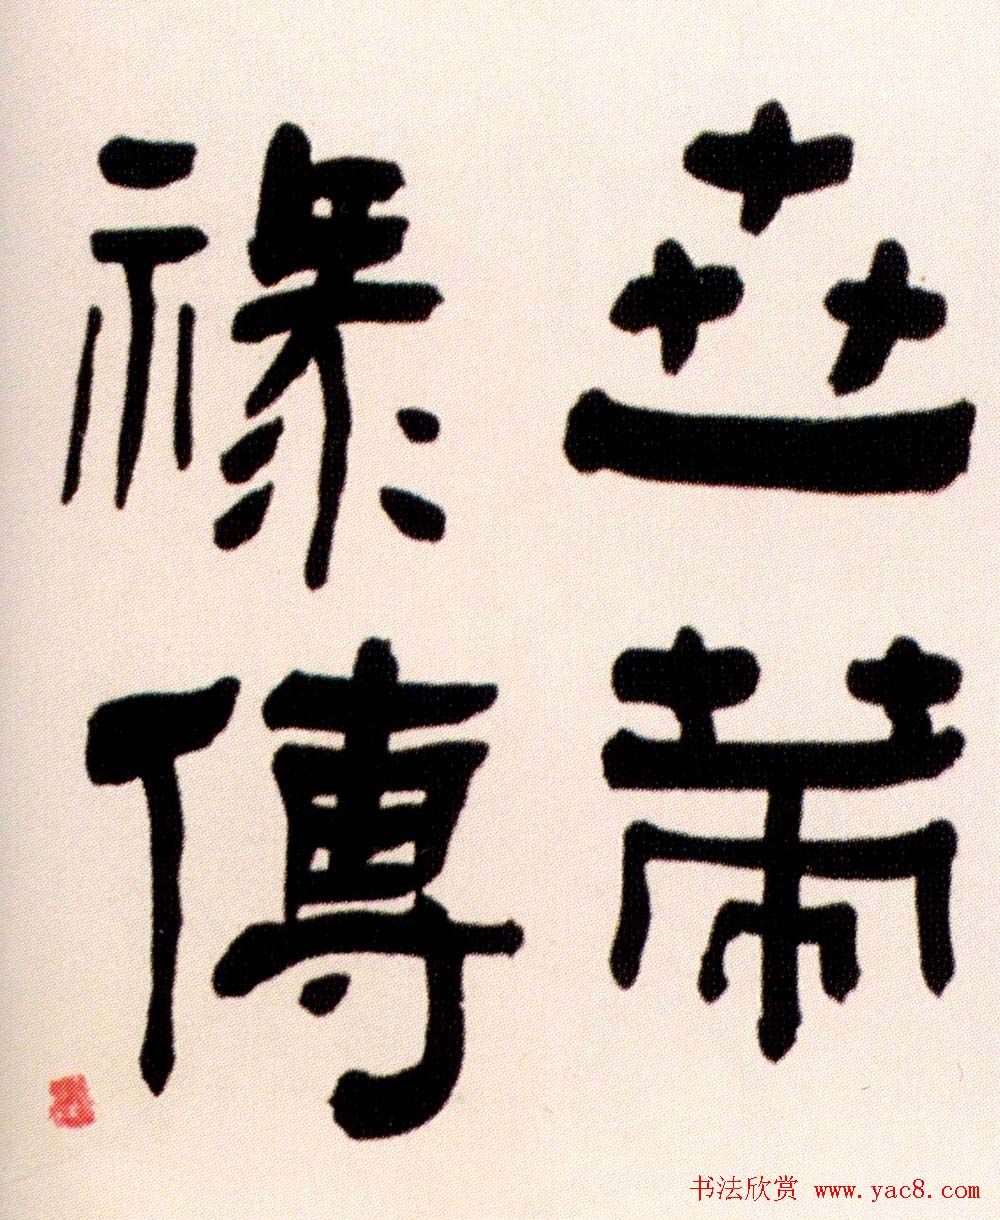 世帶
祿傳
书法欣赏 www.yac8.com